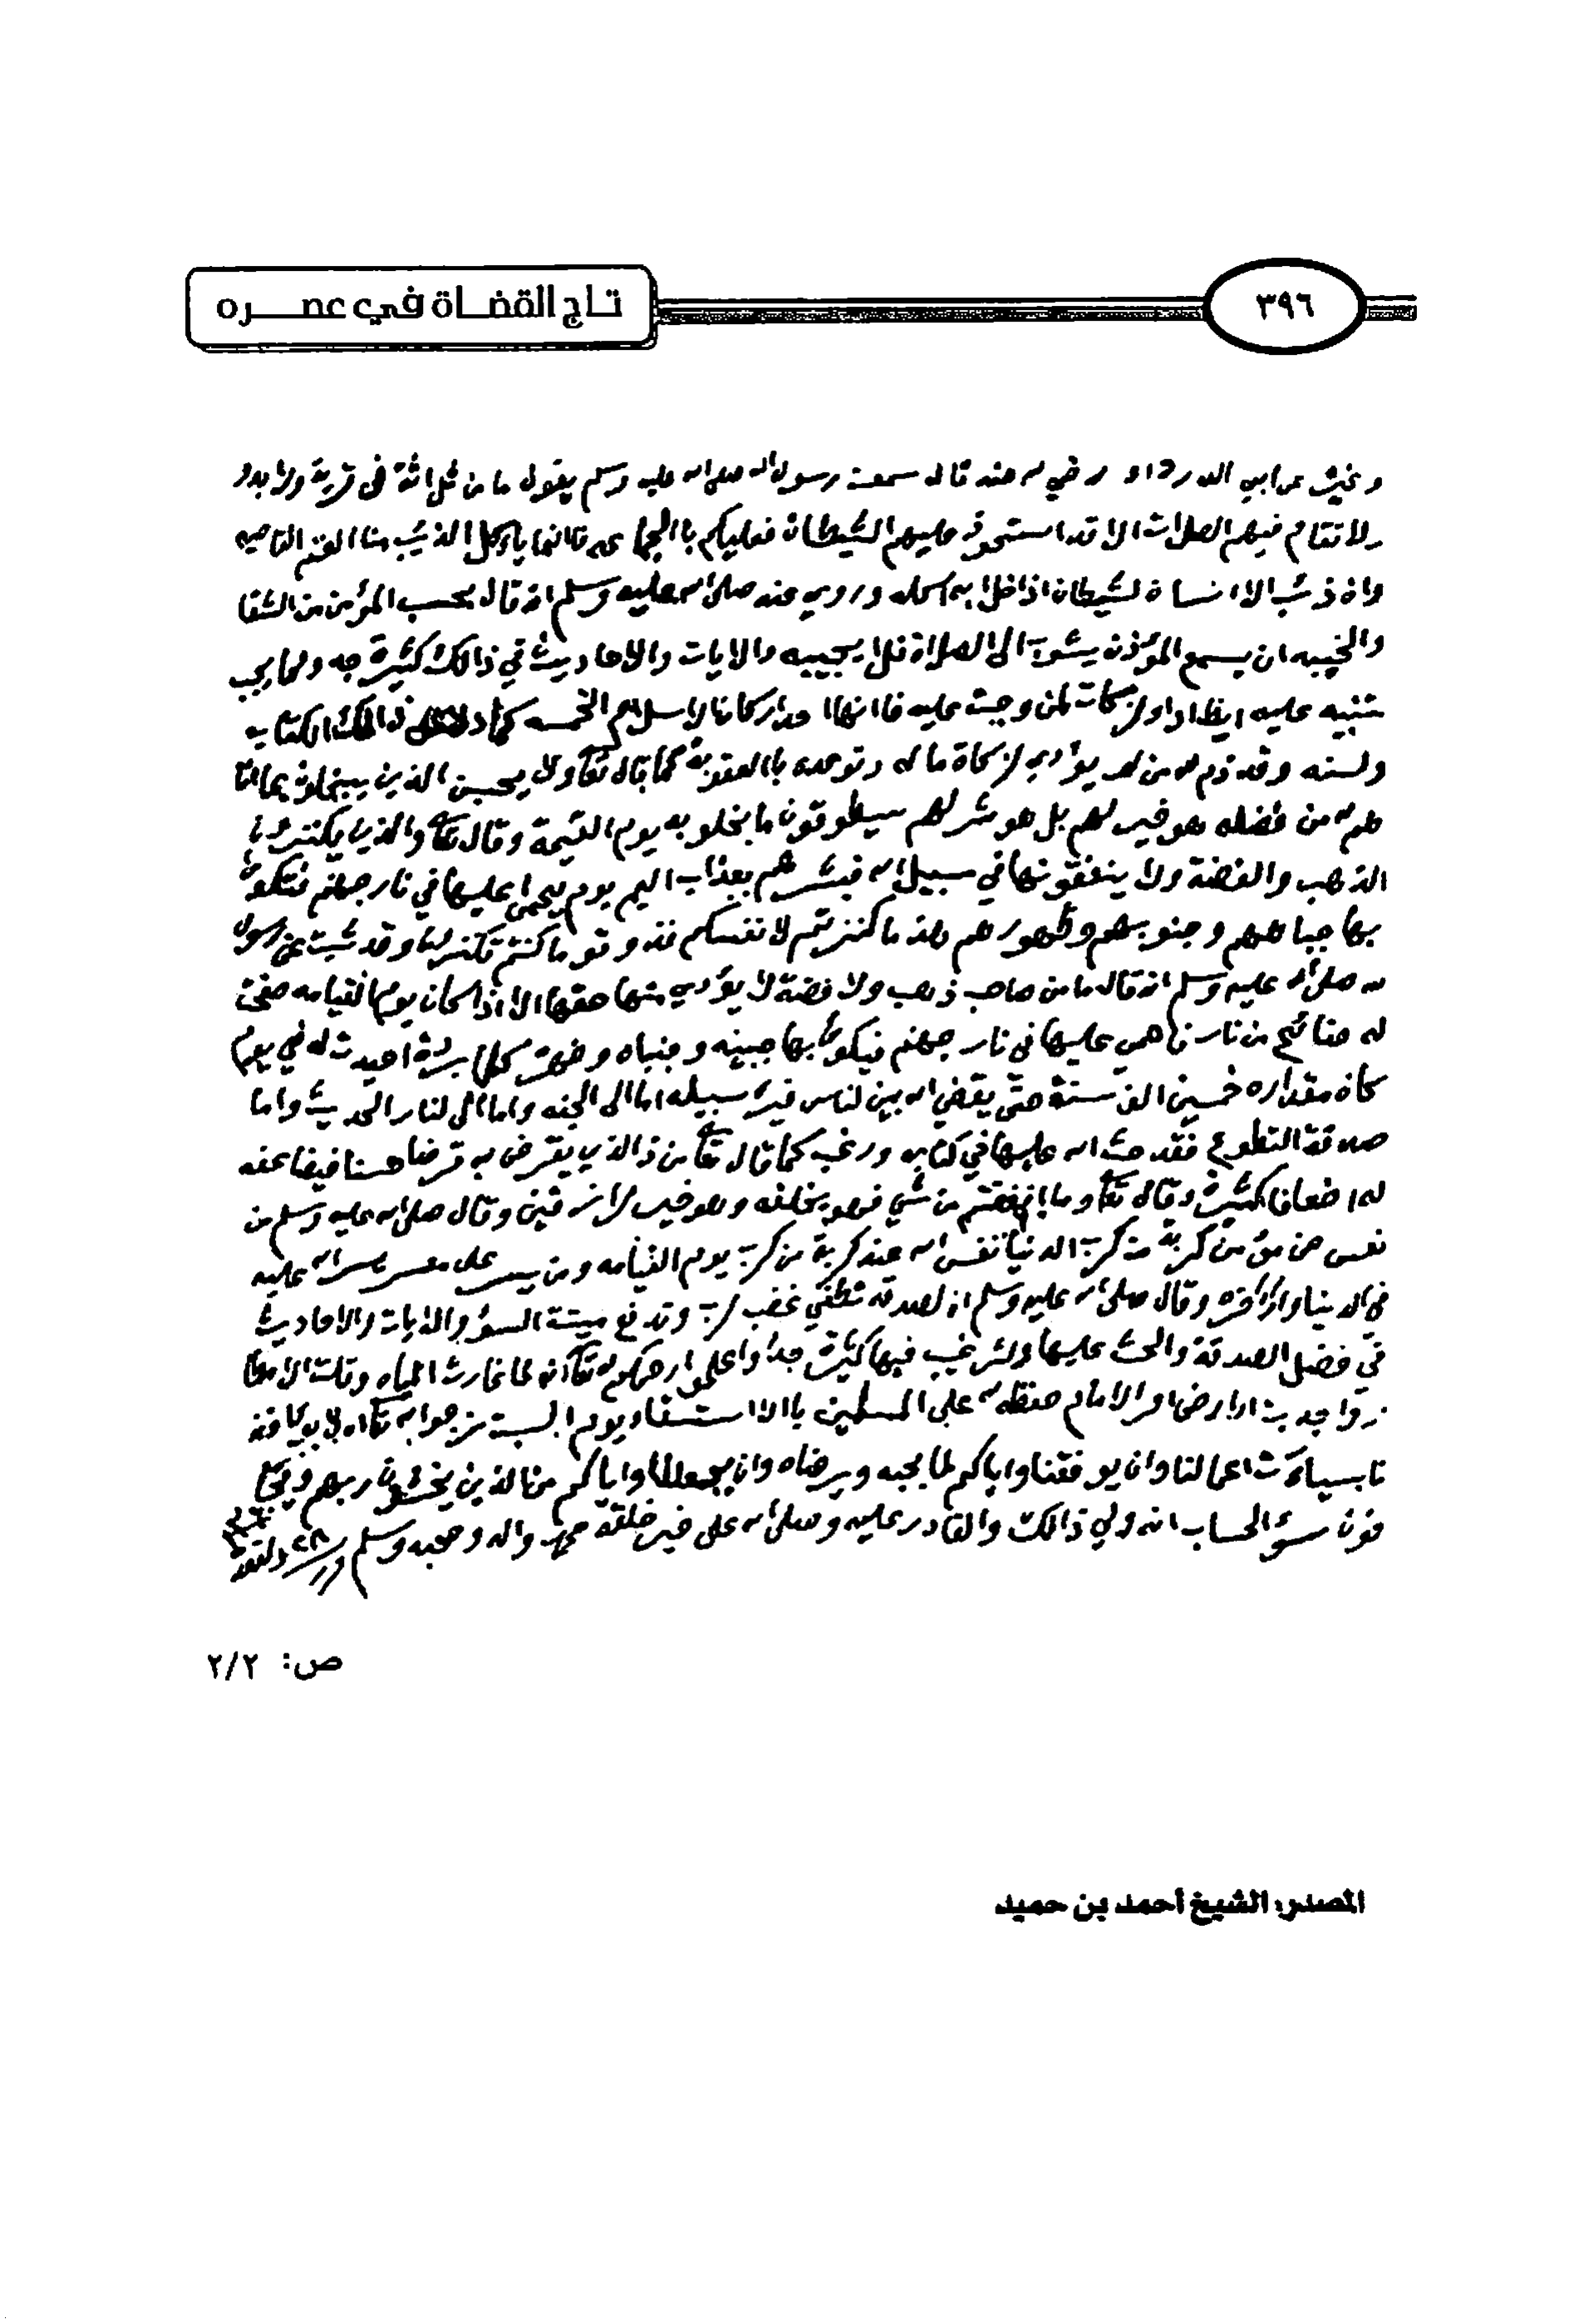 ٣٩٦
تاج القضاة في عصره
وعن ابي الدرداء رضي الله عنه قال سمعت رسول الله صلى الله عليه وسلم يقول ما من ثلاثة في قرية ولا بدو
لا تقام فيهم الصلات الا قد استحوذ عليهم الشيطان فعليكم با الجماعه فانما ياكل الذئب من الغنم القاصيه
وان ذئب الا انسان لشيطان اذا خلا به اكله وروي عنه صلى الله عليه وسلم انه قال بحسب المؤمن من الشقا
والخيبه ان يسمع المؤذن يثوب الى الصلاة فلا يجيبه والايات والاحاديث في ذالك كثيرة جد ومما يجب
تنبيه عليه ايظا اداء لزكات لمن وجبت عليه فاانها احد اركان الاسلام الخمسه كما دل على ذالك الكتاب
ولسنه وقد ذم الله من لم يؤدي لزكاة ماله وتوعده باالعقوبة كما قال تعا ولا يحسبن الذين يبخلون بما اتا
هم الله من فضله هو خير لهم بل هو شر لهم سيطوقون ما بخلو به يوم القيمة وقال تعا والذين يكنزون
الذهب والفضة ولا ينفقونها في سبيل الله فبشرهم بعذاب اليم يوم يحمى عليها في نار جهنم فتكوى
بها جباههم وجنوبهم وظهورهم هذا ما كنزتم لانفسكم فذوقو ما كنتم تكنزون وقد ثبت عن رسول
الله صلى الله عليه وسلم انه قال ما من صاحب ذهب ولا فضة لا يؤدي منها حقها الا اذا كان يوم القيامه صفحت
له صفائح من نار فاحمي عليها في نار جهنم فيكوى بها جبينه وجنباه وظهره كلما بردة اعيدت له في يوم
كان مقداره خمسين الف سنة حتى يقضي الله بين لناس فيرى سبيله اما الى الجنه واما الى لنار الحديث واما
صدقة التطوع فقد حث الله عليها في كتابه ورغب كما قال تعا من ذا الذي يقرض الله قرضا حسنا فيضاعفه
له اضعافا كثيرة وقال تعا وما انفقتم من شي فهو يخلفه وهو خير لرازقين وقال صلى الله عليه وسلم من
نفس عن مؤمن كربة من كرب الدنيا نفس الله عنه كربة من كرب يوم القيامه ومن يسر على معسر يسر الله عليه
في الدنيا والاخره وقال صلى الله عليه وسلم ان لصدقه تطفي غضب لرب وتدفع ميتة السوؤ والايات والاحاديث
في فضل الصدقة والحث عليها ولترغيب فيها كثيرة جدا واعلموا رحمكم الله تعا انه لما غارت المياه وقلت الامطا
ر واجدبت الارض امر الامام حفظه الله على المسلمين باالا استسقاء يوم السبت نرجوا الله تعا ان لا يواخذ
نا بسيات اعمالنا وان يوفقنا واياكم لما يحبه ويرضاه وان يجعلنا واياكم من الذين يخشون ربهم ويخا
فون سوء الحساب انه ولي ذالك والقادر عليه وصلى الله على خير خلقه محمد واله وصحبه وسلم
ص: ٢/٢
المصدر: الشيخ أحمد بن حميد